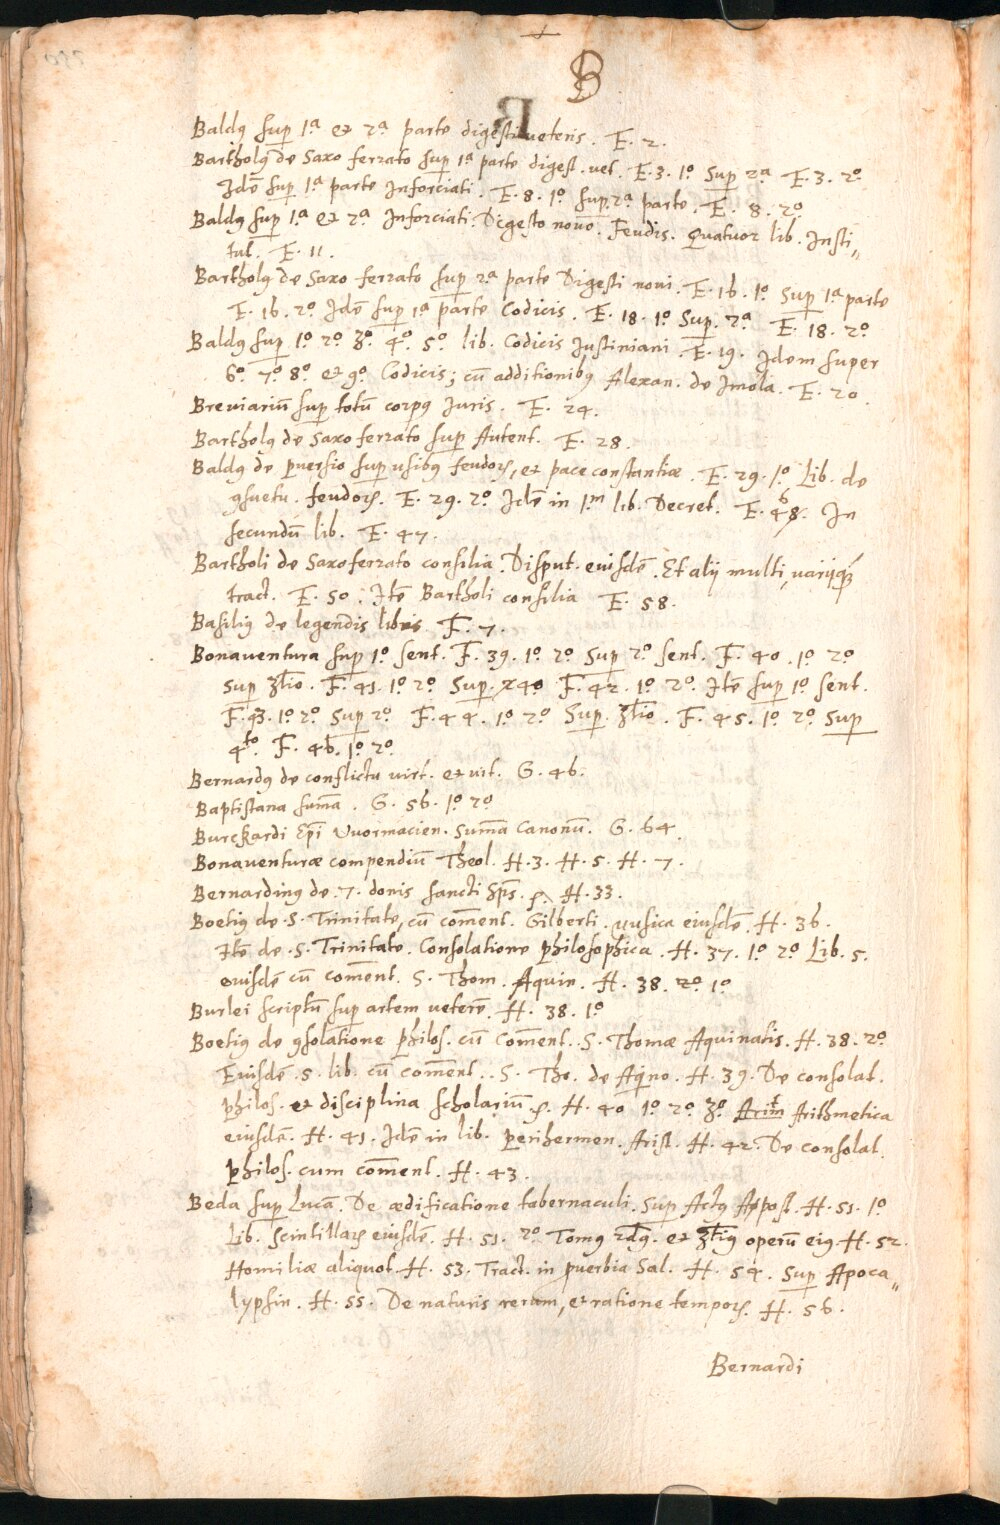 B
Baldꝰ sup 1ª et 2ª parte digesti veteris. E. 2.
Bartholꝰ de Saxo ferrato sup 1ª parte digest. vet. E. 3. 1º Sup 2ª E. 3. 2º
Idē sup 1ª parte Inforciati. E. 8. 1º sup. 2ª parte. E. 8. 2º
Baldꝰ sup 1ª et 2ª Inforciati. Digesto novo. Feudis. Quatuor lib. Insti„
tut. E. 11.
Bartholꝰ de Saxo ferrato sup 2ª parte Digesti novi. E. 16. 1º Sup 1ª parte
E. 16. 2º Idē sup 1ª parte Codicis. E. 18. 1º Sup. 2ª E. 18. 2º
Baldꝰ sup 1º 2º 3º 4º 5º lib. Codicis Justiniani. E. 19. Idem super
6º 7º 8º et 9º Codicis; cū additionibꝰ Alexan. de Imola. E. 20.
Breviariū sup totū corpꝰ Juris. E. 24.
Bartholꝰ de Saxo ferrato sup Autent. E. 28.
Baldꝰ de pꝰversio sup usibꝰ feudoꝝ, et pace constantiæ. E. 29. 1º Lib. de
ꝯsuetu. feudoꝝ. E. 29. 2º Idē in 1m lib. Decret. E. 46. In
secundū lib. E. 47.
Bartholi de Saxoferrato consilia. Disput. eiusdē. Et alij multi, varijqꝫ
tract. E. 50. Itē Bartholi consilia E. 58.
Basiliꝰ de legendis libris. F. 7.
Bonaventura sup 1º sent. F. 39. 1º 2º Sup 2º sent. F. 40. 1º 2º
Sup 3tio. F. 41. 1º 2º Sup. 4º F. 42. 1º 2º. Itē sup 1º sent.
F. 43. 1º 2º Sup 2º F. 44. 1º 2º Sup. 3tio. F. 45. 1º 2º Sup
4to. F. 46. 1º 2º
Bernardꝰ de conflictu virt. et vit. G. 46.
Baptistana sum̄a. G. 56. 1º 2º
Burckardi Epī Vuormacien. Sum̄a Canonū. G. 64
Bonaventuræ compendiū Theol. H. 3. H. 5. H. 7.
Bernardinꝰ de .7. donis sancti Sp̄s. H. 33.
Boetiꝰ de .S. Trinitate, cū com̄ent. Gilberti. Musica eiusdē. H. 36.
Itē de .S. Trinitate. Consolatione philosophica. H. 37. 1º 2º Lib. 5.
eiusdē cū com̄ent. S. Thom. Aquin. H. 38. 2º 1º
Burlei scriptū sup artem veterē. H. 38. 1º
Boetiꝰ de ꝯsolatione philos. cū com̄ent. S. Thomæ Aquinatis. H. 38. 2º
Eiusdē .5. lib. cū com̄ent. S. Tho. de Aqino. H. 39. De consolat.
philos. et disciplina scholariū. H. 40 1º 2º 3º Arithmetica
eiusdē. H. 41. Idē in lib. perihermen. Arist. H. 42. De consolat.
philos. cum com̄ent. H. 43.
Beda sup Lucā. De ædificatione tabernaculi. Sup Actꝰ Apost. H. 51. 1º
Lib. Scintillaꝝ eiusdē. H. 51. 2º Tomꝰ 2dꝰ. et 3tiꝰ operū eiꝰ. H. 52.
Homiliæ aliquot. H. 53. Tract. in ꝓverbia Sal. H. 54. Sup Apoca„
lypsin. H. 55. De naturis rerum, et ratione tempoꝝ. H. 56.
Bernardi